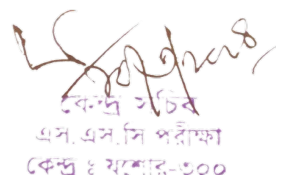 কেন্দ্র সচিব
এস.এস.সি পরীক্ষা
কেন্দ্র ঃ যশোর-৩০০